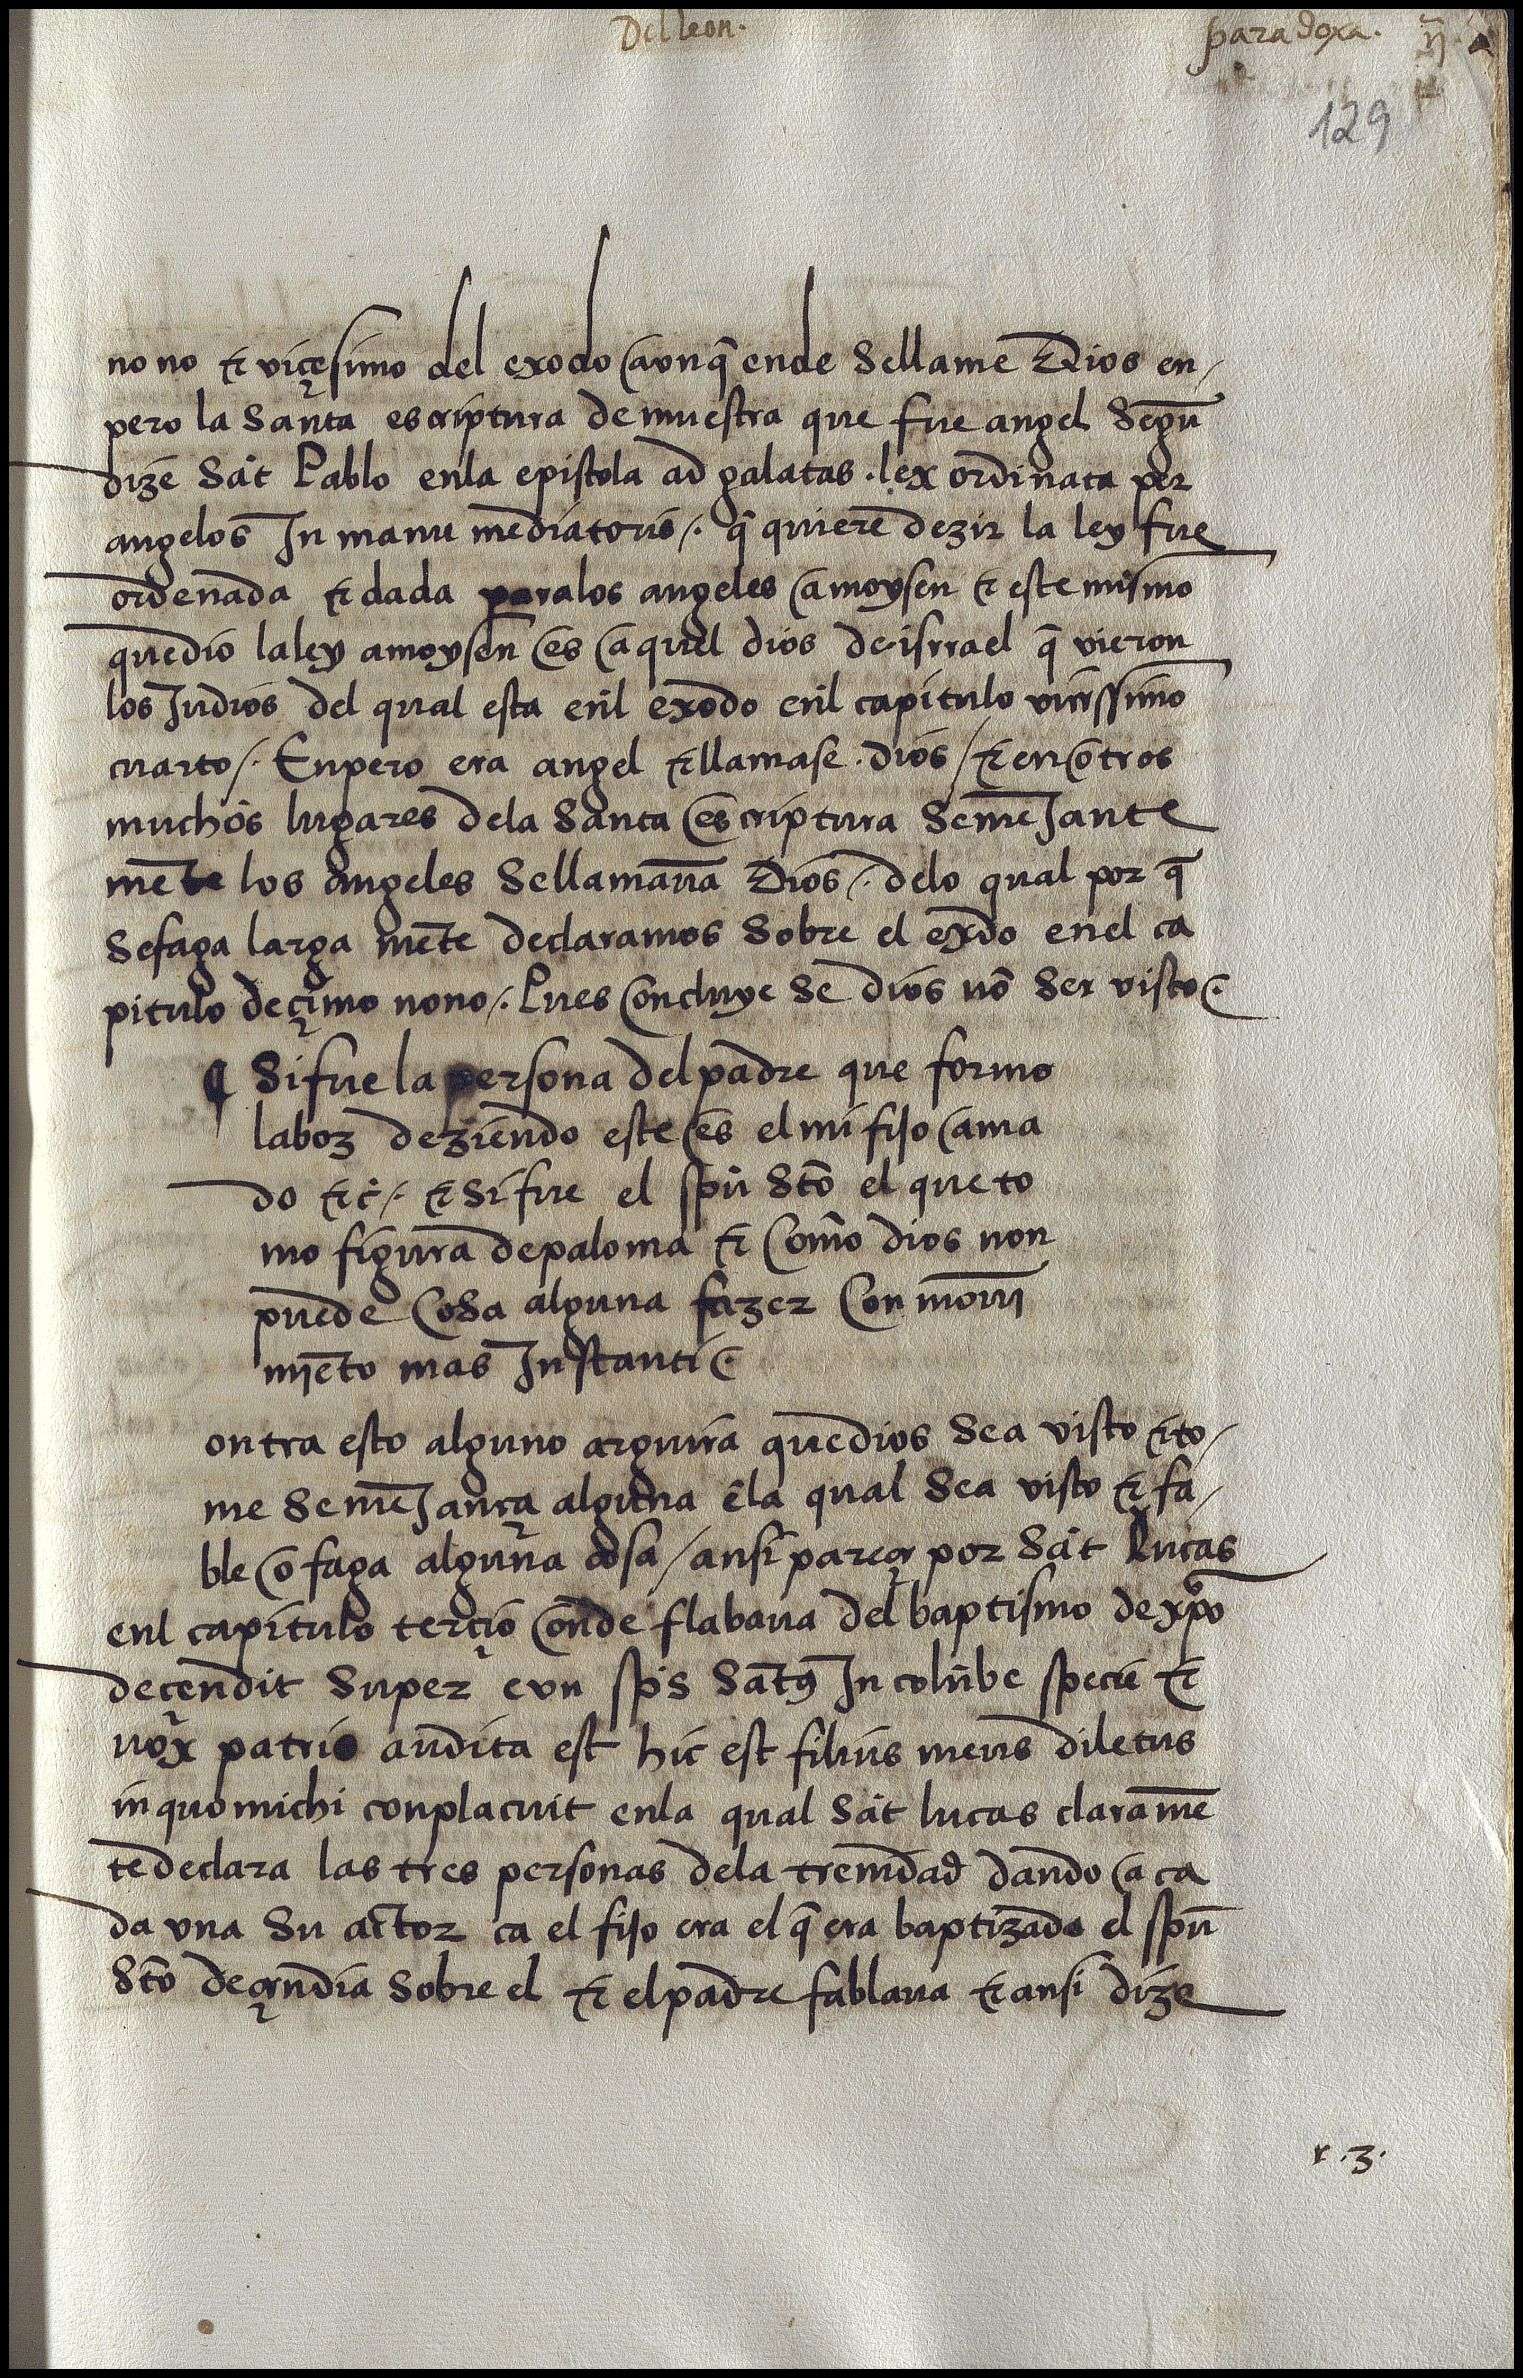 Del leon.
paradoxa.
129
no no & viçesimo del exodo aunq̃ ende se llame Dios en/
pero la Santa escriptura demuestra que fue angel Segũ
dize Sãt Pablo enla epistola ad galatas . lex ordinata per
angelos In manu mediatoris /. q̃ quiere dezir la ley fue
ordenada & dada por los angeles a moysen & este mismo
quedio laley amoysen es aquel dios de isrrael q̃ vieron
los Judios del qual esta enl exodo enl capitulo vicessimo
cuarto /. Enpero era angel & llamase . dios / & en otros
muchos lugares dela Santa escriptura SemeJante
mẽte los angeles Sellamauã Dios /. delo qual por q̃
Sefaga larga mẽte declaramos Sobre el exodo enel ca
pitulo deçimo nono /. Pues concluye Se dios nõ Ser visto .
¶ Si fue la persona del padre que formo
laboz deziendo este es el mi fijo ama
do & c̃ /. & Si fue el spũ Stõ el que to
mo figura depaloma & Como dios non
puede Cosa alguna fazer Con moui
mjẽto mas Instanti .
ontra esto alguno arguira quedios Sea visto & to/
me SemeJança alguna ẽla qual Sea visto & fa/
ble o faga alguña cosa / ansi pareçe por Sãt Lucas
enl capitulo terçio onde flabaua del baptismo de xp̃o
deçendit Super eun sp̃s Sãt9 In colũbe specie &
uox patris audita est hic est filius meus diletus
in quo michi conplacuit enla qual Sãt lucas claramẽ
te declara las tres personas dela trenidad dando a ca
da vna Su actor ca el fijo era el q̃ era baptizado el spũ
Stõ deçendia Sobre el & el padre fablaua & ansi dize
r . 3 .